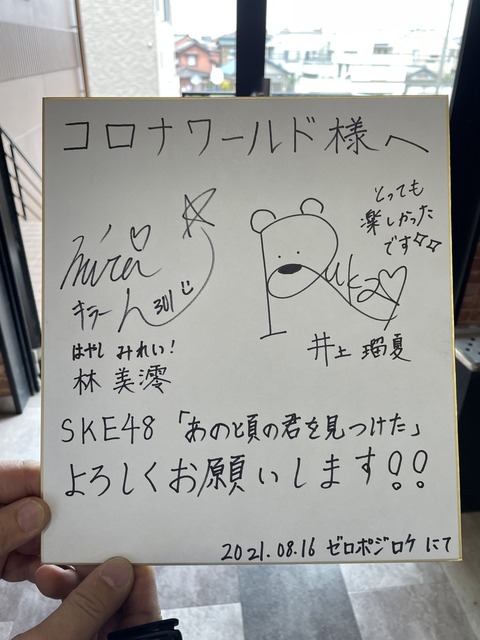 コロナワールド様へ
mirei
キラーん
はやし みれい!
林 美澪
とっても
楽しかった
です
Ruka
井上 瑠夏
SKE48「あの頃の君を見つけた」
よろしくお願いします!!
2021.08.16 ゼロポジロケにて